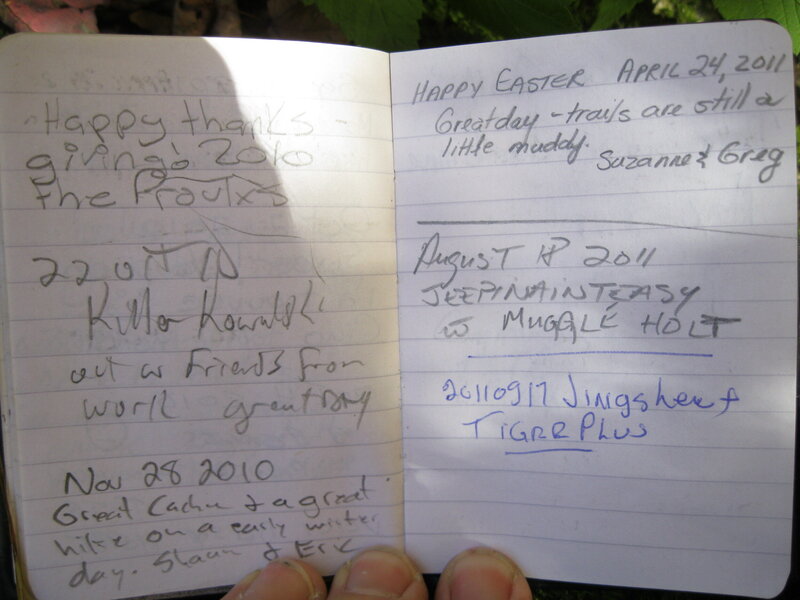 Happy thanks-
giving! 2010
the Proulxs
22 OCT 10
Killer Kowalski
out w Friends from
work great Day
Nov 28 2010
Great Cache & a great
hike on a early winter
day. Shaun & Eric
HAPPY EASTER APRIL 24, 2011
Great day - trails are still a
little muddy.
Suzanne & Greg
August 18 2011
JEEPINAINTEASY
w MUGGLE HOLT
20110917 Jingsher &
TIGRR PLUS